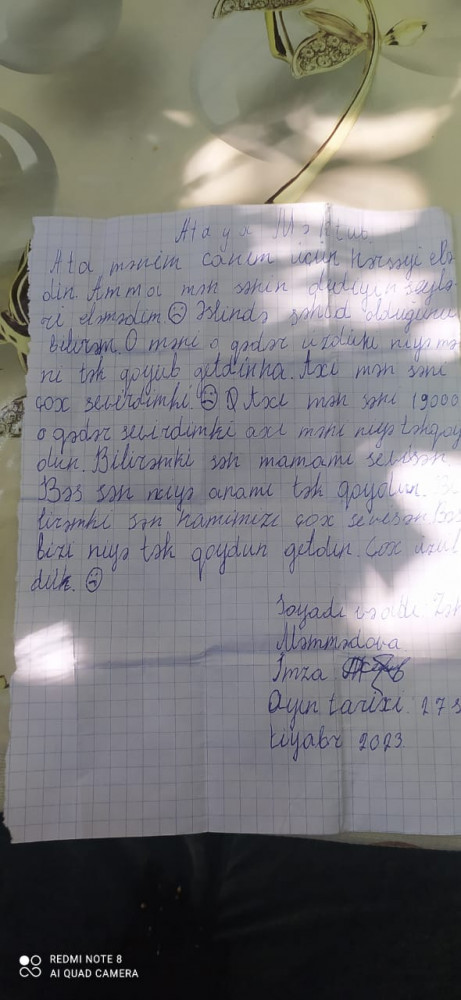 Ataya Məktub.
Ata mənim canım üçün hərşeyi elə
din. Amma mən sənin dediyin şeylə
ri eləmədim. ☹ Əslində şəhid olduğunu
bilirəm. O məni o qədər üzdüki niyə mə
ni tək qoyub getdinha. Axı mən səni
çox sevirdimki. ☹ Axı mən səni 19000
o qədər sevirdimki axı məni niyə təkqoy
dun. Bilirəmki sən mamamı sevirsən
Bəs sən niyə anamı tək qoydun. Bi
lirəmki sən hamimizi çox sevirsən Bəs
bizi niyə tək qoydun getdun. Çox üzül
dük. ☹
Soyadı və adı:
Məmmədova
İmza
Ayın tarixi. 27 s
tiyabr 2023.
REDMI NOTE 8
AI QUAD CAMERA